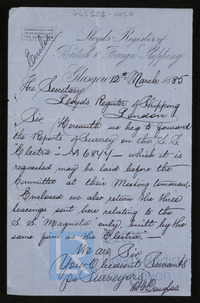 GLS202-0020
COMMUNICATIONS
TO BE ADDRESSED
Lloyd's Register of
British & Foreign Shipping
Glasgow 12th March 1885
The Secretary
Lloyds Register of Shipping
London
Sir, Herewith we beg to forward
the Report of Survey on the S.S.
"Electro" No 6844 - which it is
requested may be laid before the
Committee at their Meeting tomorrow.
Enclosed we also return the three
tracings sent here relating to the
S.S. "Magneta" only, built by the
same firm as the Electro -
We are Sir
Your Obedient Servants
pro Surveyors
Douglas